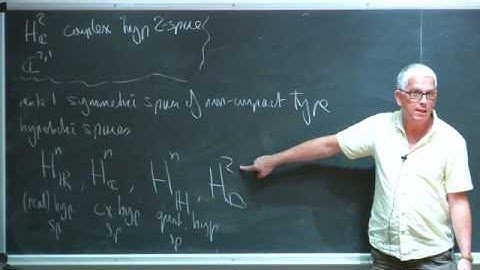 H²_ℂ complex hyp 2-space
ℂ^{2,1}
rank 1 symmetric spaces of non-compact type
hyperbolic spaces
Hⁿ_ℝ, Hⁿ_ℂ, Hⁿ_ℍ, H²_𝕆
(real) hyp sp
cx hyp sp
quat. hyp sp